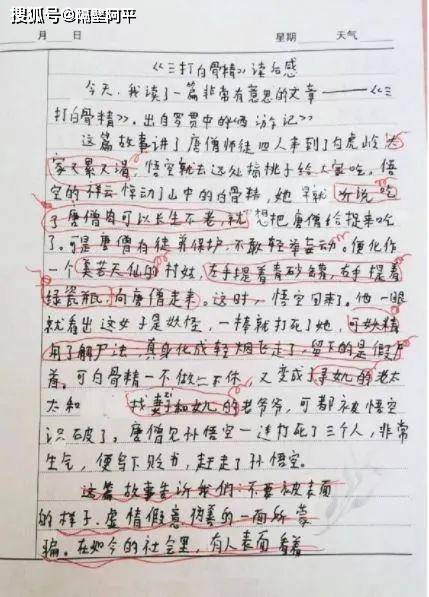 搜狐号@隔壁阿平
月 日 星期 天气
《三打白骨精》读后感
今天,我读了一篇非常有意思的文章——《三
打白骨精》。出自罗贯中的《西游记》
这篇故事讲了唐僧师徒四人来到了白虎岭 大
家又累又渴,悟空就去远处摘桃子给大家吃。悟
空的祥云惊动了山中的白骨精,她早就听说吃
了唐僧肉可以长生不老,就想把唐僧给捉来吃
了。可是唐僧有徒弟保护,不敢轻举妄动。便化作
一个美若天仙的村姑,左手提着青砂罐,右手提着
绿瓷瓶,向唐僧走来。这时,悟空回来了。他一眼
就看出这女子是妖怪,一棒就打死了她,可妖精
用了解尸法,真身化成轻烟飞走了,留下的是假尸
首。可白骨精一不做二不休,又变成了寻女儿的老太
太和 找妻子和女儿的老爷爷,可都被悟空
识破了。唐僧见孙悟空一连打死了三个人,非常
生气,便写下贬书,赶走了孙悟空。
这篇故事告诉我们:不要被表面
的样子、虚情假意伪善的一面所蒙
骗。在如今的社会里,有人表面看着